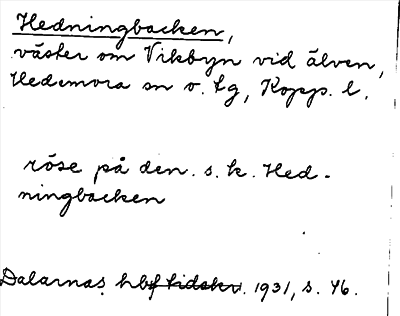 Hedningbacken,
väster om Vikbyn vid älven,
Hedemora sn o. tg, Kopp. l.
röse på den s. k. Hed-
ningbacken
Dalarnas hbf tidskr. 1931, s. 46.